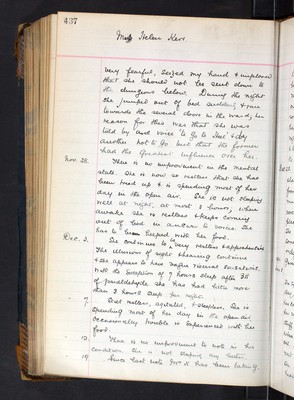 437
Miss Helen Kerr
very fearful, seized my hand & implored
that she should not be sent down to
the dungeons below. During the night
she jumped out of bed suddenly & ran
towards the several doors in the ward, her
reason for this was that she was
told by one voice to go to Hell & by
another not to go but that the former
had the greatest influence over her.
Nov. 28. There is no improvement in the mental
state. She is now so restless that she has
been tied up & is spending most of her
day in the open air. She is not sleeping
well at night, at most 3 hours; when
awake she is restless & keeps coming
out of bed in answer to voices. She
has to be helped with her food.
Dec. 3. She continues to be very restless & apprehensive
The illusions of sight & hearing continue
& she appears to have major visceral
With the exception of 7 hours sleep after 3ii
of paraldehyde she has had little more
than 3 hours sleep per night.
" 7. Still restless, agitated, & sleepless. She is
spending most of her day in the open air
Occasionally trouble is experienced with her
food.
" 12. There is no improvement to note in this
condition. She is not sleeping any better.
" 19. Since last note Miss K has been taking